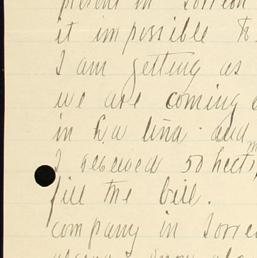 present in Torreon
it impossible to
I am getting as
we are coming
in La Lina and
I received 50 hecti
fill the bill.
company in Torre